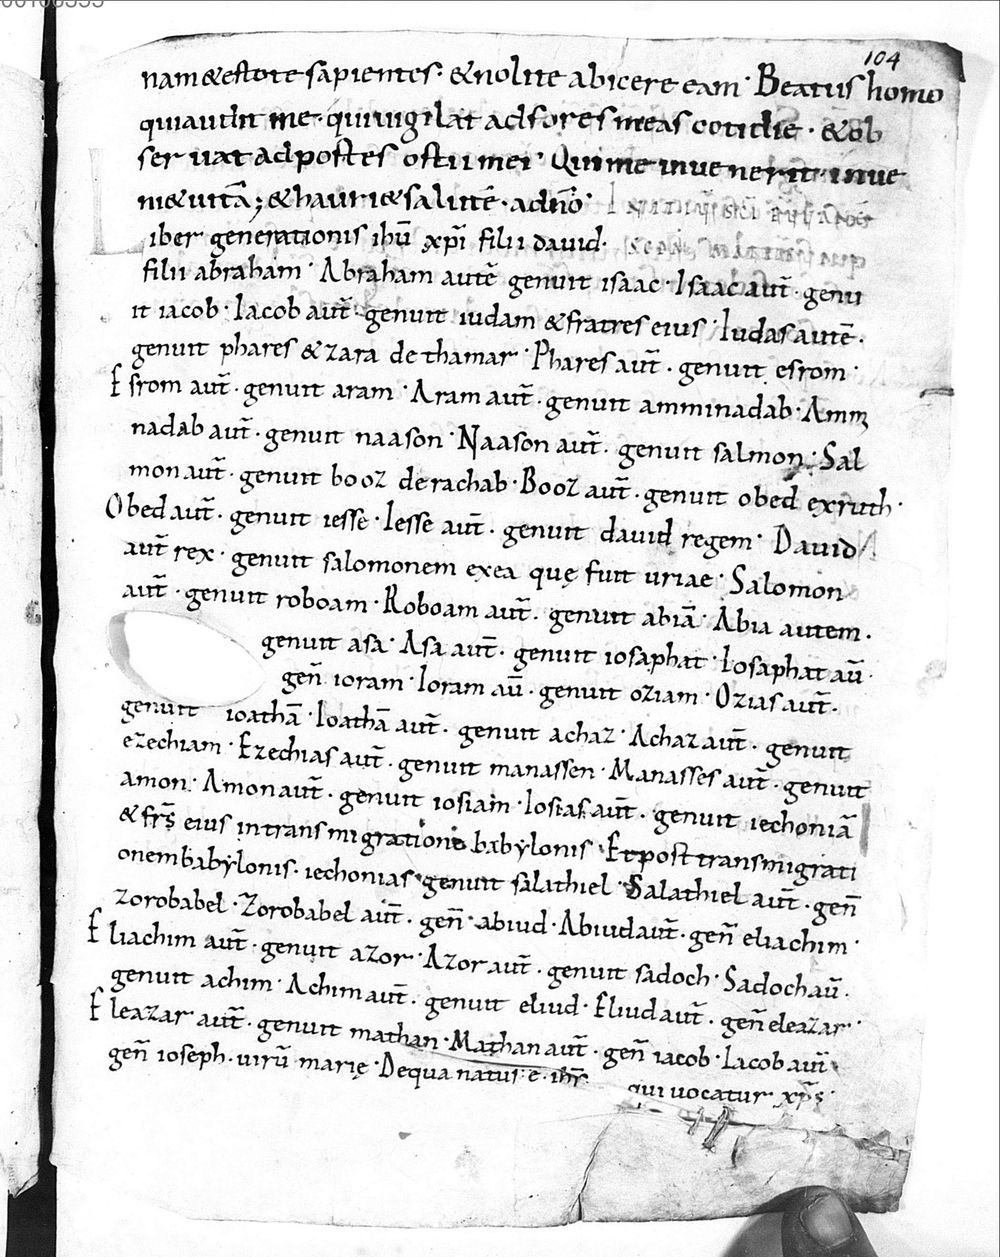 104
nam &estote sapientes· &nolite abicere eam· Beatus homo
quiaudit me· quiuigilat adfores meas cotidie· &ob
seruat adpostes ostii mei· Quime inuenerit· inue
ni&uitā; &hauri&salutē· adnō·
Liber generationis ihū xpī filii david·
filii abraham· Abraham autē genuit isaac· Isaac aut̄· genu
it iacob· Iacob aut̄· genuit iudam &fratres eius· Iudas autē·
genuit phares &zara dethamar· Phares aut̄· genuit esrom·
Esrom aut̄· genuit aram· Aram aut̄· genuit amminadab· Amm
nadab aut̄· genuit naason· Naason aut̄· genuit salmon· Sal
mon aut̄· genuit booz derachab· Booz aut̄· genuit obed exruth·
Obed aut̄· genuit iesse· Iesse aut̄· genuit dauid regem· Dauid
aut̄ rex· genuit salomonem exea quę fuit uriae· Salomon
aut̄· genuit roboam· Roboam aut̄· genuit abiā· Abia autem·
genuit asa· Asa aut̄· genuit iosaphat· Iosaphat aū·
geñ ioram· Ioram aū· genuit oziam· Ozias aut̄·
genuit ioathā· Ioathā aut̄· genuit achaz· Achaz aut̄· genuit
ezechiam· Ezechias aut̄· genuit manassen· Manasses aut̄· genuit
amon· Amon aut̄· genuit iosiam· Iosias aut̄· genuit iechoniā
&frs̄ eius intransmigratione babylonis· Etpost transmigrati
onembabylonis· iechonias· genuit salathiel· Salathiel aut̄· geñ
zorobabel· Zorobabel aut̄· geñ· abiud· Abiud aut̄· geñ eliachim·
Eliachim aut̄· genuit azor· Azor aut̄· genuit sadoch· Sadoch aū·
genuit achim· Achim aut̄· genuit eliud· Eliud aut̄· geñ eleazar·
Eleazar aut̄· genuit mathan· Mathan aut̄· geñ iacob· Iacob aut̄·
geñ ioseph· uirū marię· Dequa natus· e· ihs̄· qui uocatur xps̄·